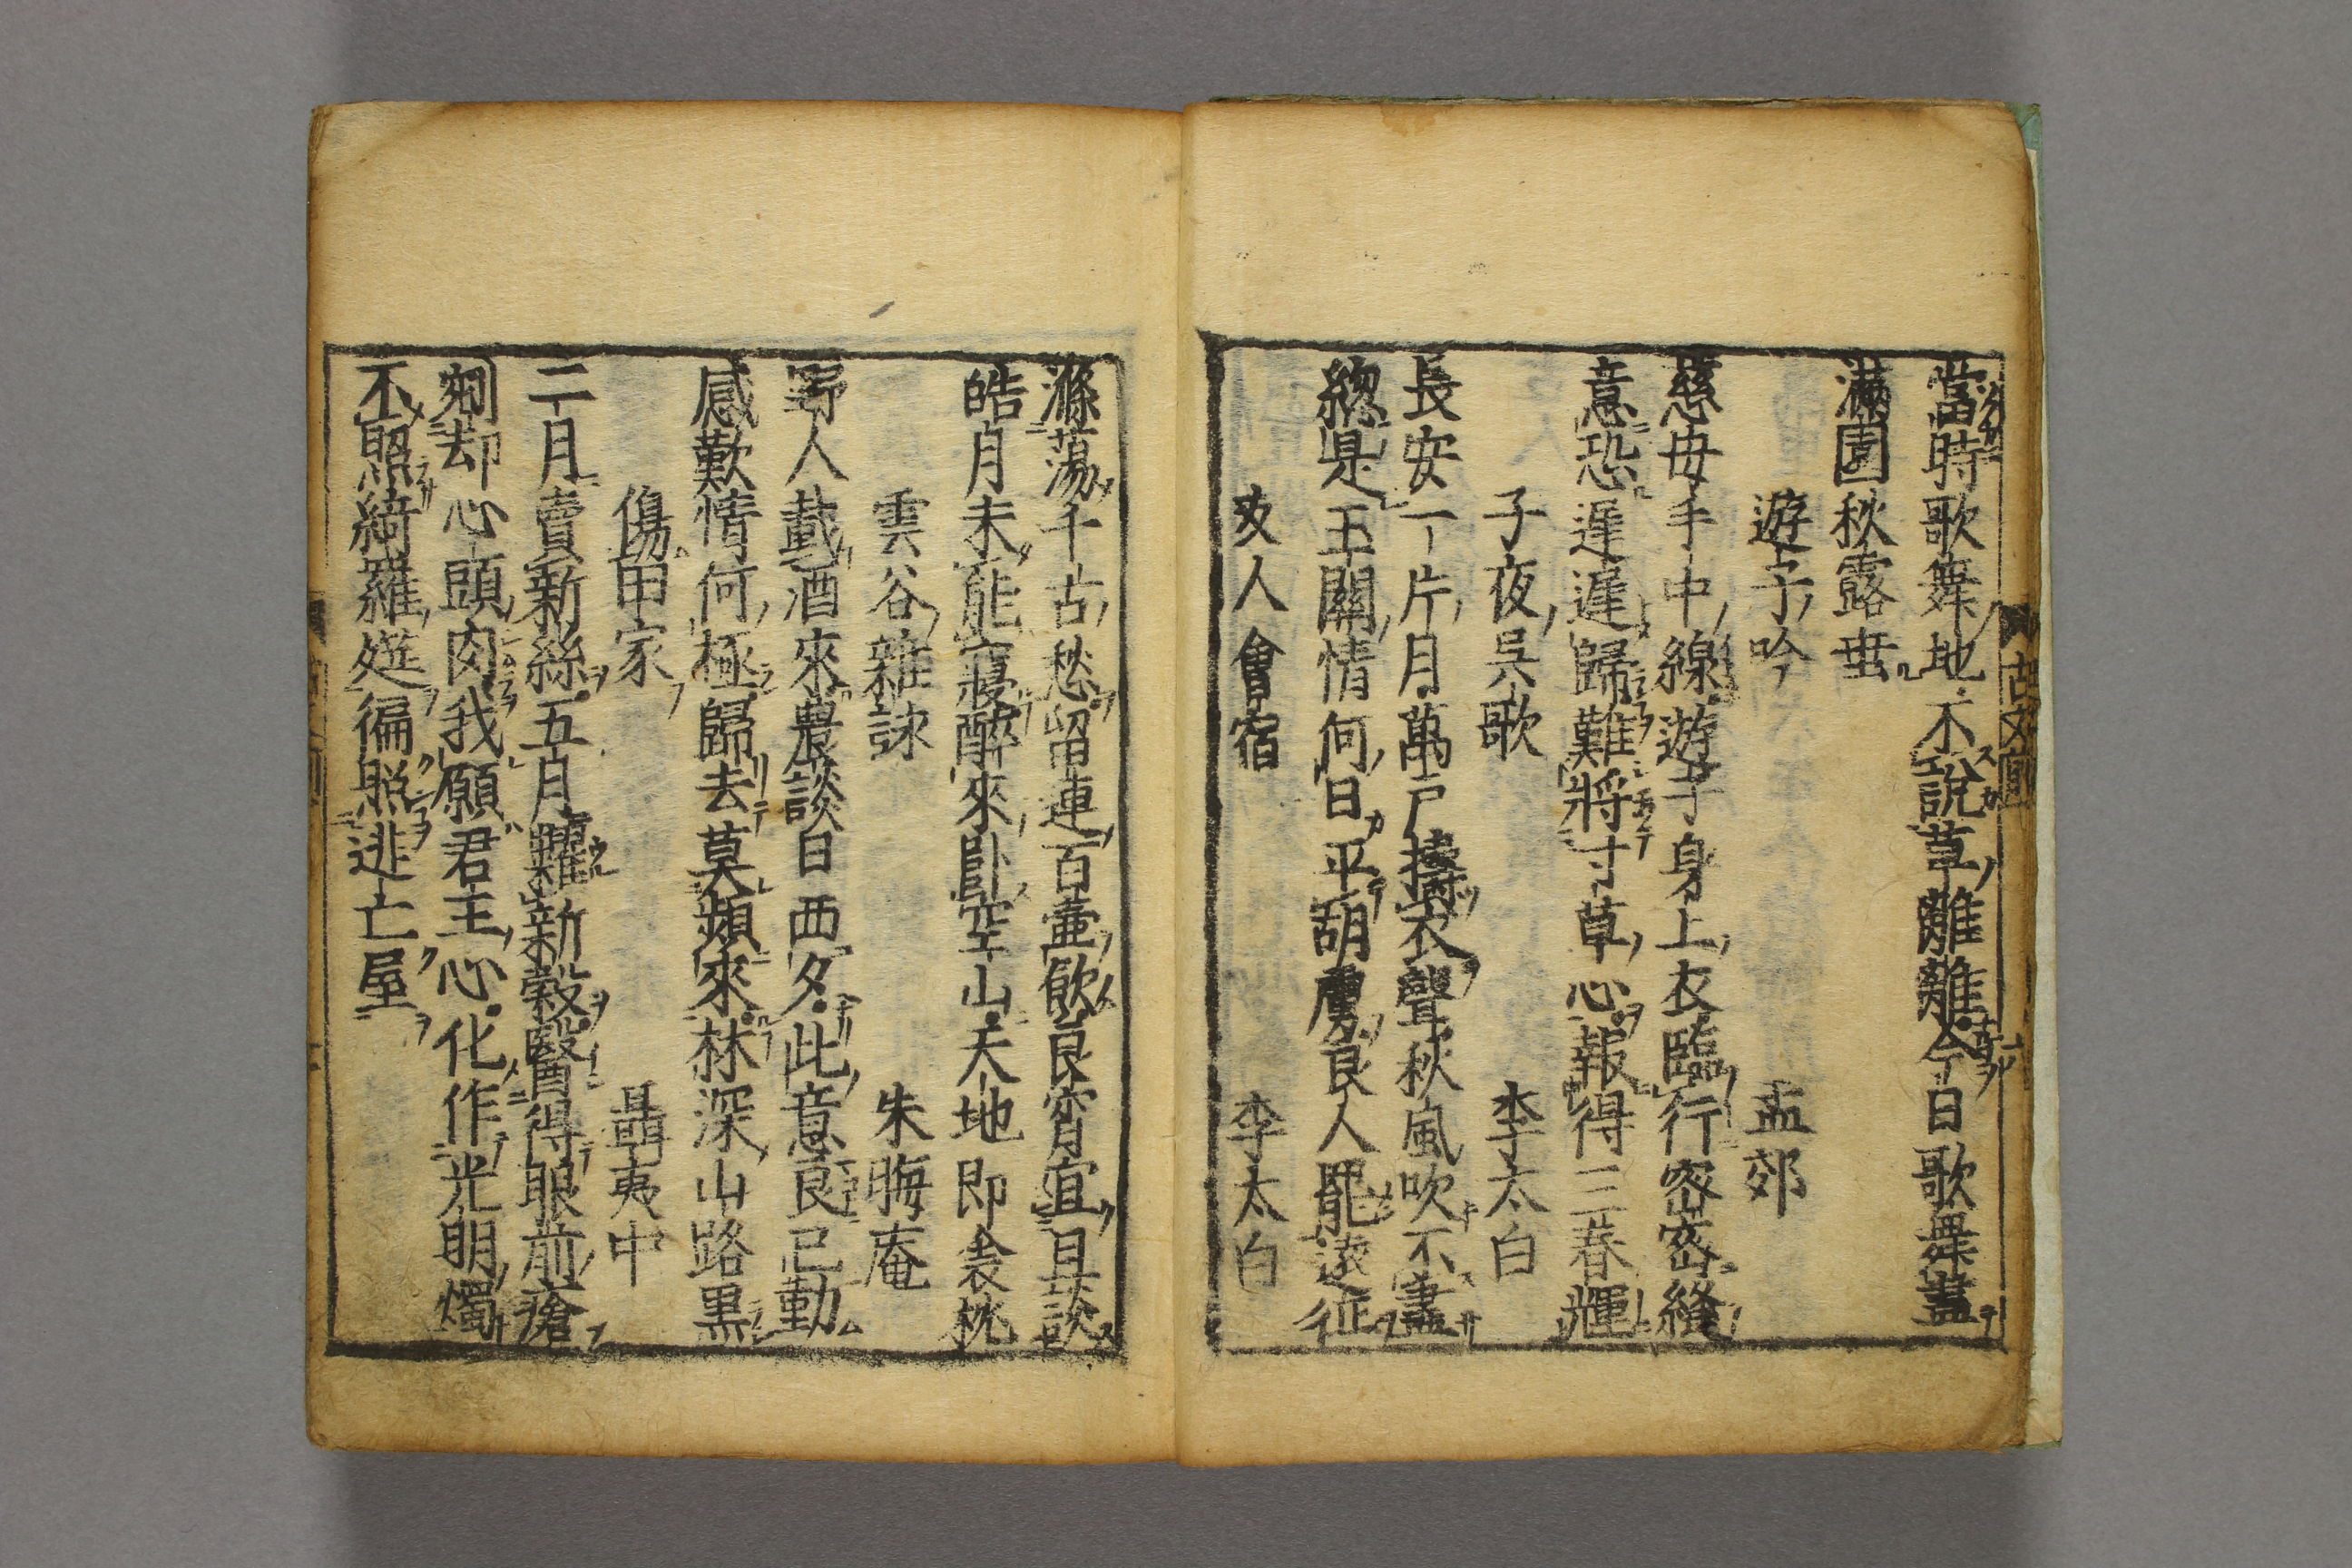 當時歌舞地不說草離離今日歌舞盡
滿園秋露垂
遊子吟 孟郊
慈母手中線遊子身上衣臨行密密縫
意恐遲遲歸難將寸草心報得三春輝
子夜吳歌 李太白
長安一片月萬戶擣衣聲秋風吹不盡
緫是玉關情何日平胡虜良人罷遠征
友人會宿 李太白
滌蕩千古愁留連百壷飲良宵宜且談
皓月未能寢醉來臥空山天地即衾枕
雲谷雜詠 朱晦庵
野人載酒來農談日西夕此意良已勤
感歎情何極歸去莫頻來林深山路黒
傷田家 聶夷中
二月賣新絲五月糶新穀醫得眼前瘡
剜却心頭肉我願君王心化作光明燭
不照綺羅筵徧照逃亡屋